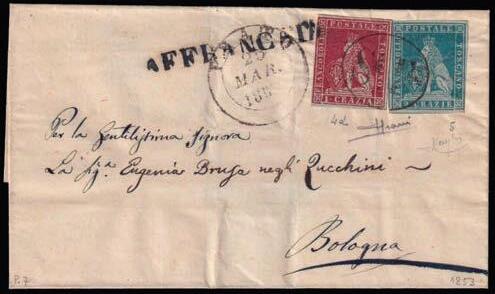 AFFRANCATA
25
MAR.
185
FRANCOBOLLO POSTALE TOSCANO
1 CRAZIA
FRANCOBOLLO POSTALE TOSCANO
CRAZIE
4d
5
Per la Gentilissima Signora
La Sig.a Eugenia Brusa negli Zucchini
Bologna
P.7
1853